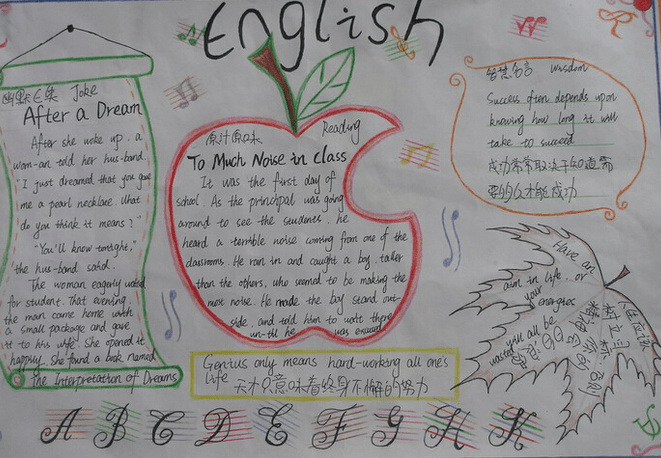 English
幽默 Joke
After a Dream
After she woke up, a
wom-an told her hus-band.
"I just dreamed that you gave
me a pearl necklace. What
do you think it means?"
"You'll know tonight,"
the hus-band said.
The woman eagerly
for student. That evening,
the man came home with
a small package and gave
it to his wife. She opened it
happily. She found a book named
The Interpretation of Dreams
原汁原味 Reading
To Much Noise in Class
It was the first day of
school. As the principal was going
around to see the students, he
heard a terrible noise coming from one of the
classrooms. He ran in and caught a boy, taller
than the others, who seemed to be making the
most noise. He made the boy stand out-
side, and told him to wait there
un-til he was excused
智慧名言 Wisdom
Success often depends upon
knowing how long it will
take to succeed
成功常常取决于知道需
要多久才能成功
Genius only means hard-working all one's
life
天才只意味着终身不懈的努力
Have an
aim in life, or
your energies
will all be
wasted
人生应该
树立目标
否则你的
精力会
白白浪费
A B C D E F G H K